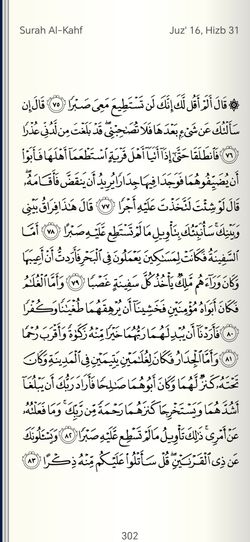 Surah Al-Kahf
Juz' 16, Hizb 31
۞ قَالَ أَلَمۡ أَقُل لَّكَ إِنَّكَ لَن تَسۡتَطِيعَ مَعِيَ صَبۡرٗا ٧٥ قَالَ إِن
سَأَلۡتُكَ عَن شَيۡءِۭ بَعۡدَهَا فَلَا تُصَٰحِبۡنِيۖ قَدۡ بَلَغۡتَ مِن لَّدُنِّي عُذۡرٗا
٧٦ فَٱنطَلَقَا حَتَّىٰٓ إِذَآ أَتَيَآ أَهۡلَ قَرۡيَةٍ ٱسۡتَطۡعَمَآ أَهۡلَهَا فَأَبَوۡاْ
أَن يُضَيِّفُوهُمَا فَوَجَدَا فِيهَا جِدَارٗا يُرِيدُ أَن يَنقَضَّ فَأَقَامَهُۥۖ
قَالَ لَوۡ شِئۡتَ لَتَّخَذۡتَ عَلَيۡهِ أَجۡرٗا ٧٧ قَالَ هَٰذَا فِرَاقُ بَيۡنِي
وَبَيۡنِكَۚ سَأُنَبِّئُكَ بِتَأۡوِيلِ مَا لَمۡ تَسۡتَطِع عَّلَيۡهِ صَبۡرًا ٧٨ أَمَّا
ٱلسَّفِينَةُ فَكَانَتۡ لِمَسَٰكِينَ يَعۡمَلُونَ فِي ٱلۡبَحۡرِ فَأَرَدتُّ أَنۡ أَعِيبَهَا
وَكَانَ وَرَآءَهُم مَّلِكٞ يَأۡخُذُ كُلَّ سَفِينَةٍ غَصۡبٗا ٧٩ وَأَمَّا ٱلۡغُلَٰمُ
فَكَانَ أَبَوَاهُ مُؤۡمِنَيۡنِ فَخَشِينَآ أَن يُرۡهِقَهُمَا طُغۡيَٰنٗا وَكُفۡرٗا
٨٠ فَأَرَدۡنَآ أَن يُبۡدِلَهُمَا رَبُّهُمَا خَيۡرٗا مِّنۡهُ زَكَوٰةٗ وَأَقۡرَبَ رُحۡمٗا
٨١ وَأَمَّا ٱلۡجِدَارُ فَكَانَ لِغُلَٰمَيۡنِ يَتِيمَيۡنِ فِي ٱلۡمَدِينَةِ وَكَانَ
تَحۡتَهُۥ كَنزٞ لَّهُمَا وَكَانَ أَبُوهُمَا صَٰلِحٗا فَأَرَادَ رَبُّكَ أَن يَبۡلُغَآ
أَشُدَّهُمَا وَيَسۡتَخۡرِجَا كَنزَهُمَا رَحۡمَةٗ مِّن رَّبِّكَۚ وَمَا فَعَلۡتُهُۥ
عَنۡ أَمۡرِيۚ ذَٰلِكَ تَأۡوِيلُ مَا لَمۡ تَسۡطِع عَّلَيۡهِ صَبۡرٗا ٨٢ وَيَسۡـَٔلُونَكَ
عَن ذِي ٱلۡقَرۡنَيۡنِۖ قُلۡ سَأَتۡلُواْ عَلَيۡكُم مِّنۡهُ ذِكۡرًا ٨٣
302